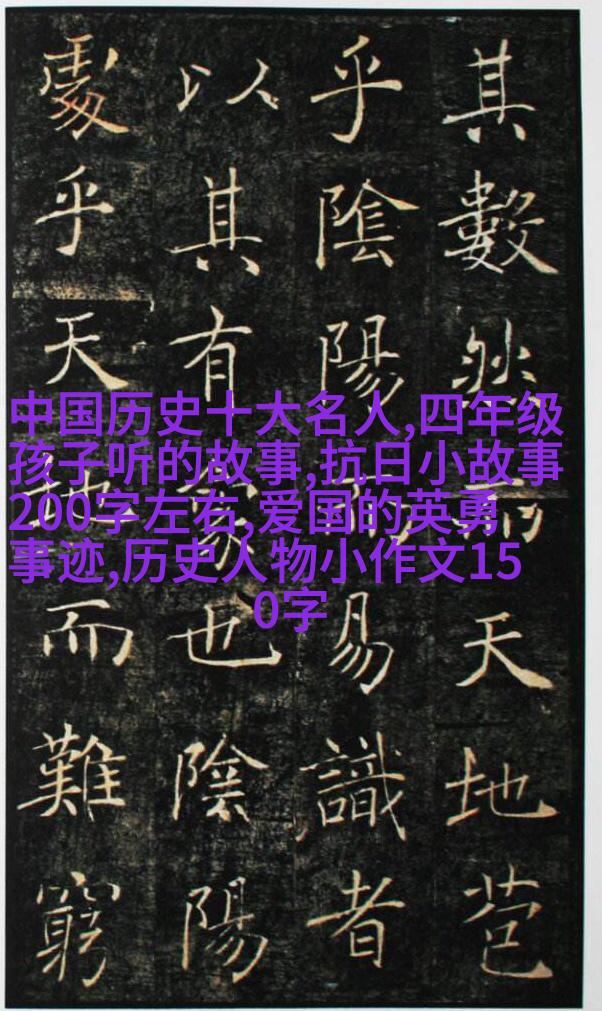 其數然而天地苞
乎陰陽而易識者
以其有象也陰陽
處乎天地而難窮
中国历史十大名人,四年级
孩子听的故事,抗日小故事
200字左右,爱国的英勇
事迹,历史人物小作文15
0字